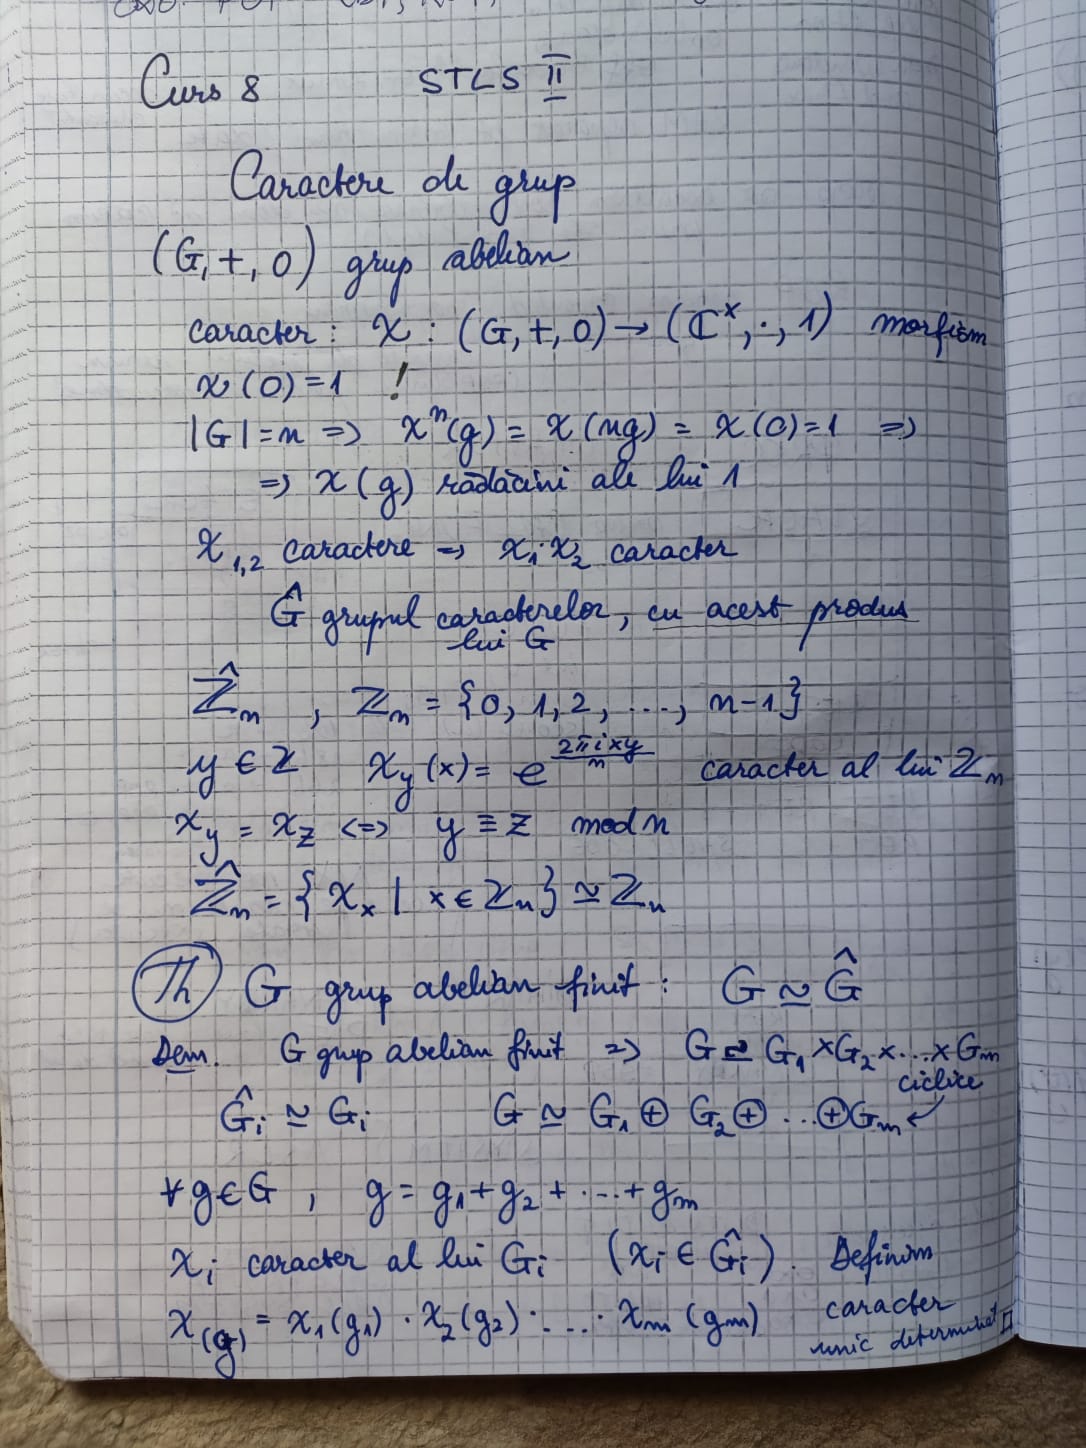 Curs 8 STLS II
Caractere de grup
(G,+,0) grup abelian
caracter: χ : (G,+,0) → (ℂ^×, ·, 1) morfism
χ(0)=1 !
|G|=n => χⁿ(g) = χ(ng) = χ(0)=1 =>
=> χ(g) rădăcini ale lui 1
χ₁,₂ caractere => χ₁·χ₂ caracter
Ĝ grupul caracterelor, cu acest produs
lui G
ℤ̂ₙ , ℤₙ = {0, 1, 2, ..., n-1}
y ∈ ℤ χ_y(x) = e^(2πixy/n) caracter al lui ℤₙ
χ_y = χ_z <=> y ≡ z mod n
ℤ̂ₙ = { χ_x | x ∈ ℤₙ} ≃ ℤₙ
Th G grup abelian finit : G ≃ Ĝ
Dem. G grup abelian finit => G ≃ G₁×G₂×...×Gₘ
ciclice
Ĝᵢ ≃ Gᵢ G ≃ G₁ ⊕ G₂ ⊕ ... ⊕ Gₘ ↙
∀ g∈G , g = g₁+g₂+...+gₘ
χᵢ caracter al lui Gᵢ (χᵢ ∈ Ĝᵢ). Definim
χ(g) = χ₁(g₁) · χ₂(g₂) · ... · χₘ(gₘ) caracter
unic determinat □